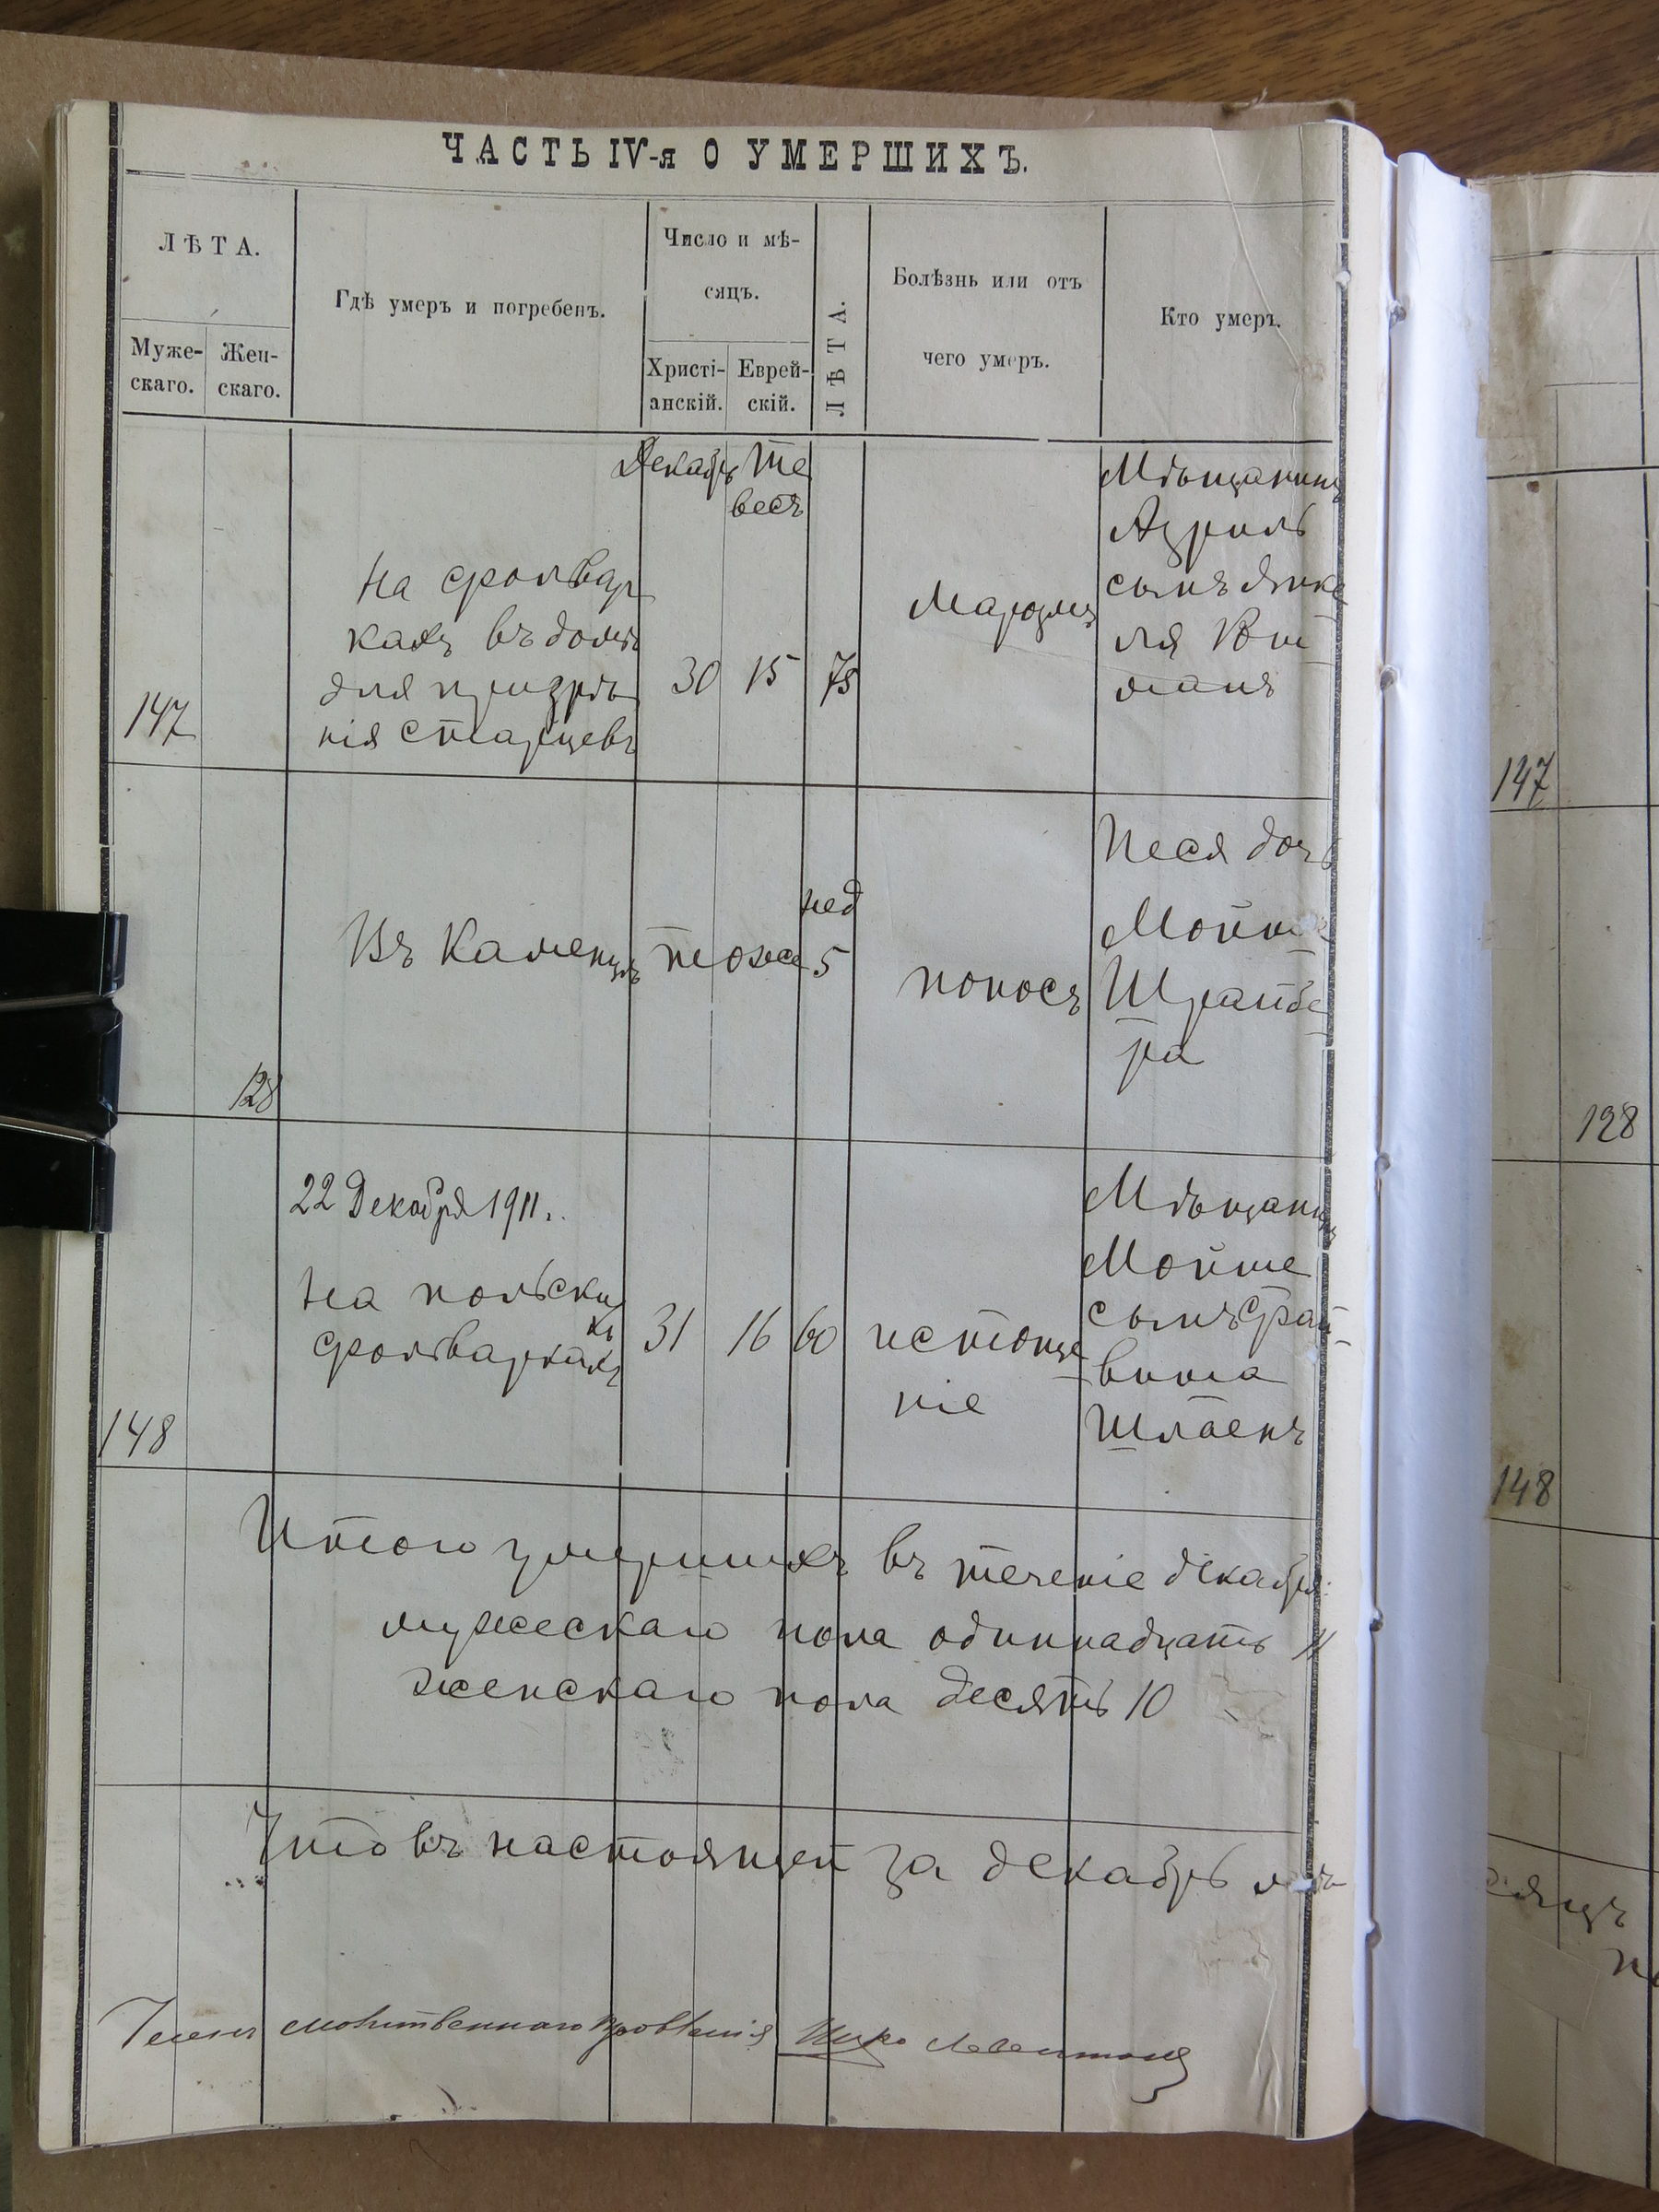 ЧАСТЬ IV-я О УМЕРШИХЪ.
ЛѢТА.
Муже-
скаго.
Жен-
скаго.
Гдѣ умеръ и погребенъ.
Число и мѣ-
сяцъ.
Христі-
анскій.
Еврей-
скій.
ЛѢТА.
Болѣзнь или отъ
чего умеръ.
Кто умеръ.
Декабрь
Те
весъ
147
На фольвар
кахъ въ домѣ
для призрѣ
нія старцевъ
30
15
75
Маразмъ
Мѣщанинъ
Азриль
сынъ Янке
ля
манъ
128
Въ Каменцѣ
тоже
нед
5
поносъ
Песя дочь
Мойше
Шрайбе
ра
148
22 Декабря 1911.
На польски
хъ
фольваркахъ
31
16
60
истоще
ніе
Мѣщанинъ
Мойше
сынъ Фай
виша
Шлаенъ
Итого умершихъ въ теченіе декабря:
мужескаго пола одиннадцать 11
женскаго пола десять 10
Что въ настоящей за декабрь мѣ
Членъ молитвеннаго правленія
147
128
148
сяцъ